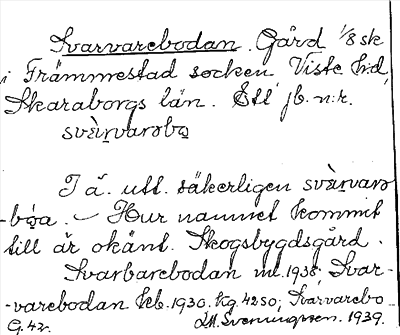 Svarvarebodan. Gård 1/8 sk
i Främmestad socken Viste h:d,
Skaraborgs län. Ett jb. n:r.
svèn̥varəbo̥
I ä. utt. säkerligen svèn̥varə
-bó̥a. – Hur namnet kommit
till är okänt. Skogsbygdsgård.
Svarbarebodan ml. 1938; Svar-
-varebodan Jeb. 1930. Kg. 4250; Svarvarebo
G. 42. 1939.